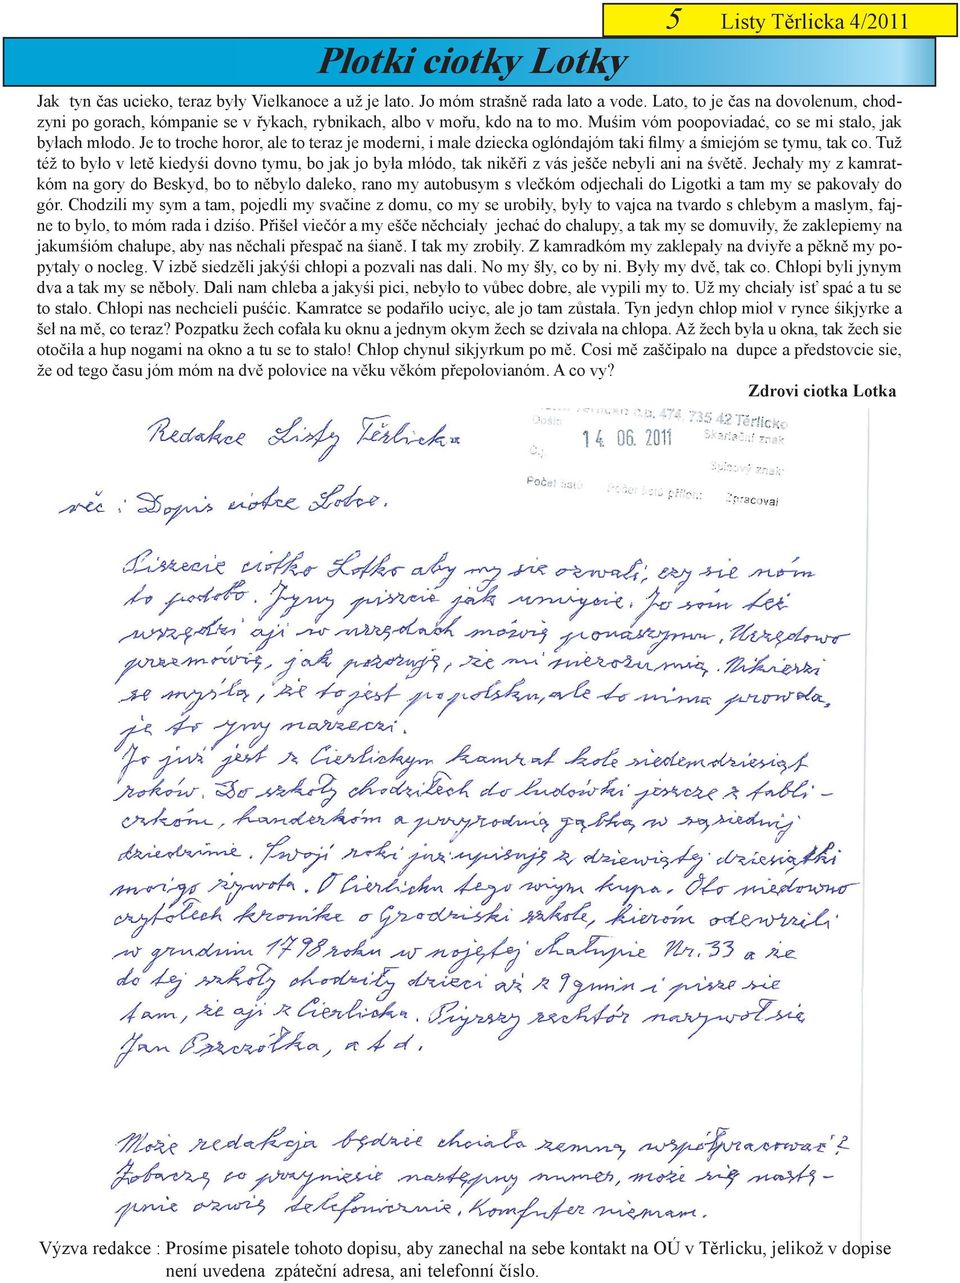 5 Listy Těrlicka 4/2011
Plotki ciotky Lotky
Jak tyn čas ucieko, teraz były Vielkanoce a už je lato. Jo móm strašně rada lato a vode. Lato, to je čas na dovolenum, chod-
zyni po gorach, kómpanie se v řykach, rybnikach, albo v mořu, kdo na to mo. Muśim vóm poopoviadać, co se mi stało, jak
byłach młodo. Je to troche horor, ale to teraz je moderni, i małe dziecka oglóndajóm taki filmy a śmiejóm se tymu, tak co. Tuž
též to było v letě kiedyśi dovno tymu, bo jak jo była młódo, tak nikěři z vás ješče nebyli ani na śvětě. Jechały my z kamrat-
kóm na gory do Beskyd, bo to něbylo daleko, rano my autobusym s vlečkóm odjechali do Ligotki a tam my se pakovały do
gór. Chodzili my sym a tam, pojedli my svačine z domu, co my se urobiły, były to vajca na tvardo s chlebym a masłym, faj-
ne to bylo, to móm rada i dziśo. Přišeł viečór a my ešče něchciały jechać do chalupy, a tak my se domuviły, že zaklepiemy na
jakumśióm chałupe, aby nas něchali přespač na śianě. I tak my zrobiły. Z kamradkóm my zaklepały na dviyře a pěkně my po-
pytaly o nocleg. V izbě siedzěli jakýśi chłopi a pozvali nas dali. No my šły, co by ni. Były my dvě, tak co. Chłopi byli jynym
dva a tak my se něboły. Dali nam chleba a jakyśi pici, nebyło to vůbec dobre, ale vypili my to. Už my chciały isť spać a tu se
to stało. Chłopi nas nechcieli puśćic. Kamratce se podařiło uciyc, ale jo tam zůstała. Tyn jedyn chłop mioł v rynce śikjyrke a
šeł na mě, co teraz? Pozpatku žech cofała ku oknu a jednym okym žech se dzivała na chłopa. Až žech była u okna, tak žech sie
otočiła a hup nogami na okno a tu se to stało! Chłop chynuł sikjyrkum po mě. Cosi mě zaščipało na dupce a předstovcie sie,
že od tego času jóm móm na dvě połovice na věku věkóm přepolovianóm. A co vy?
Zdrovi ciotka Lotka
735 42 Těrlicko
Došlo
14. 06. 2011
Skartační znak
Č.j.
Spisový znak
Počet listů Počet listů příloh: Zpracoval
Redakce Listy Těrlicka
věč : Dopis ciotce Lotce.
Piszecie ciotko Lotko aby my sie ozwali, czy sie nóm
to podobo. Jyny piszcie jak umiycie. Jo sóm też
wszędzi aji w urzędach mówię ponaszymu. Urzędowo
przemówię, jak pozorują, że mi nierozumią. Nikierzi
se myślą, że to jest po polsku, ale to nima prowda,
je to yny narzeczi.
Jo już jest z Cierlickym kamrat kole siedemdziesiąt
roków. Do szkoły chodziłech do ludówki jeszcze z tabli-
czkóm, handerkóm a przyrodnią gąbką w sąsiednij
dziedzinie. Swoji roki już upisuję z dziewiątej dziesiątki
moigo żywota. O Cierlicku tego wiym kupa. Oto niedowno
czytołech kronike o Grodziski szkole, kieróm odewrzili
w grudniu 1798 roku w nojętej chałupie Nr. 33 a że
do tej szkoły chodziły dzieci aż z 9 gmin i pisze sie
tam, że aji z Cierlicka. Piyrszy rechtór nazywoł sie
Jan Pszczółka, a t d.
Może redakcja będzie chciała zemną współpracować?
Zobaczę co przyniesie następny numer, może się nastę-
pnie ozwię telefonicznie. Komputer niemam.
Výzva redakce : Prosíme pisatele tohoto dopisu, aby zanechal na sebe kontakt na OÚ v Těrlicku, jelikož v dopise
není uvedena zpáteční adresa, ani telefonní číslo.